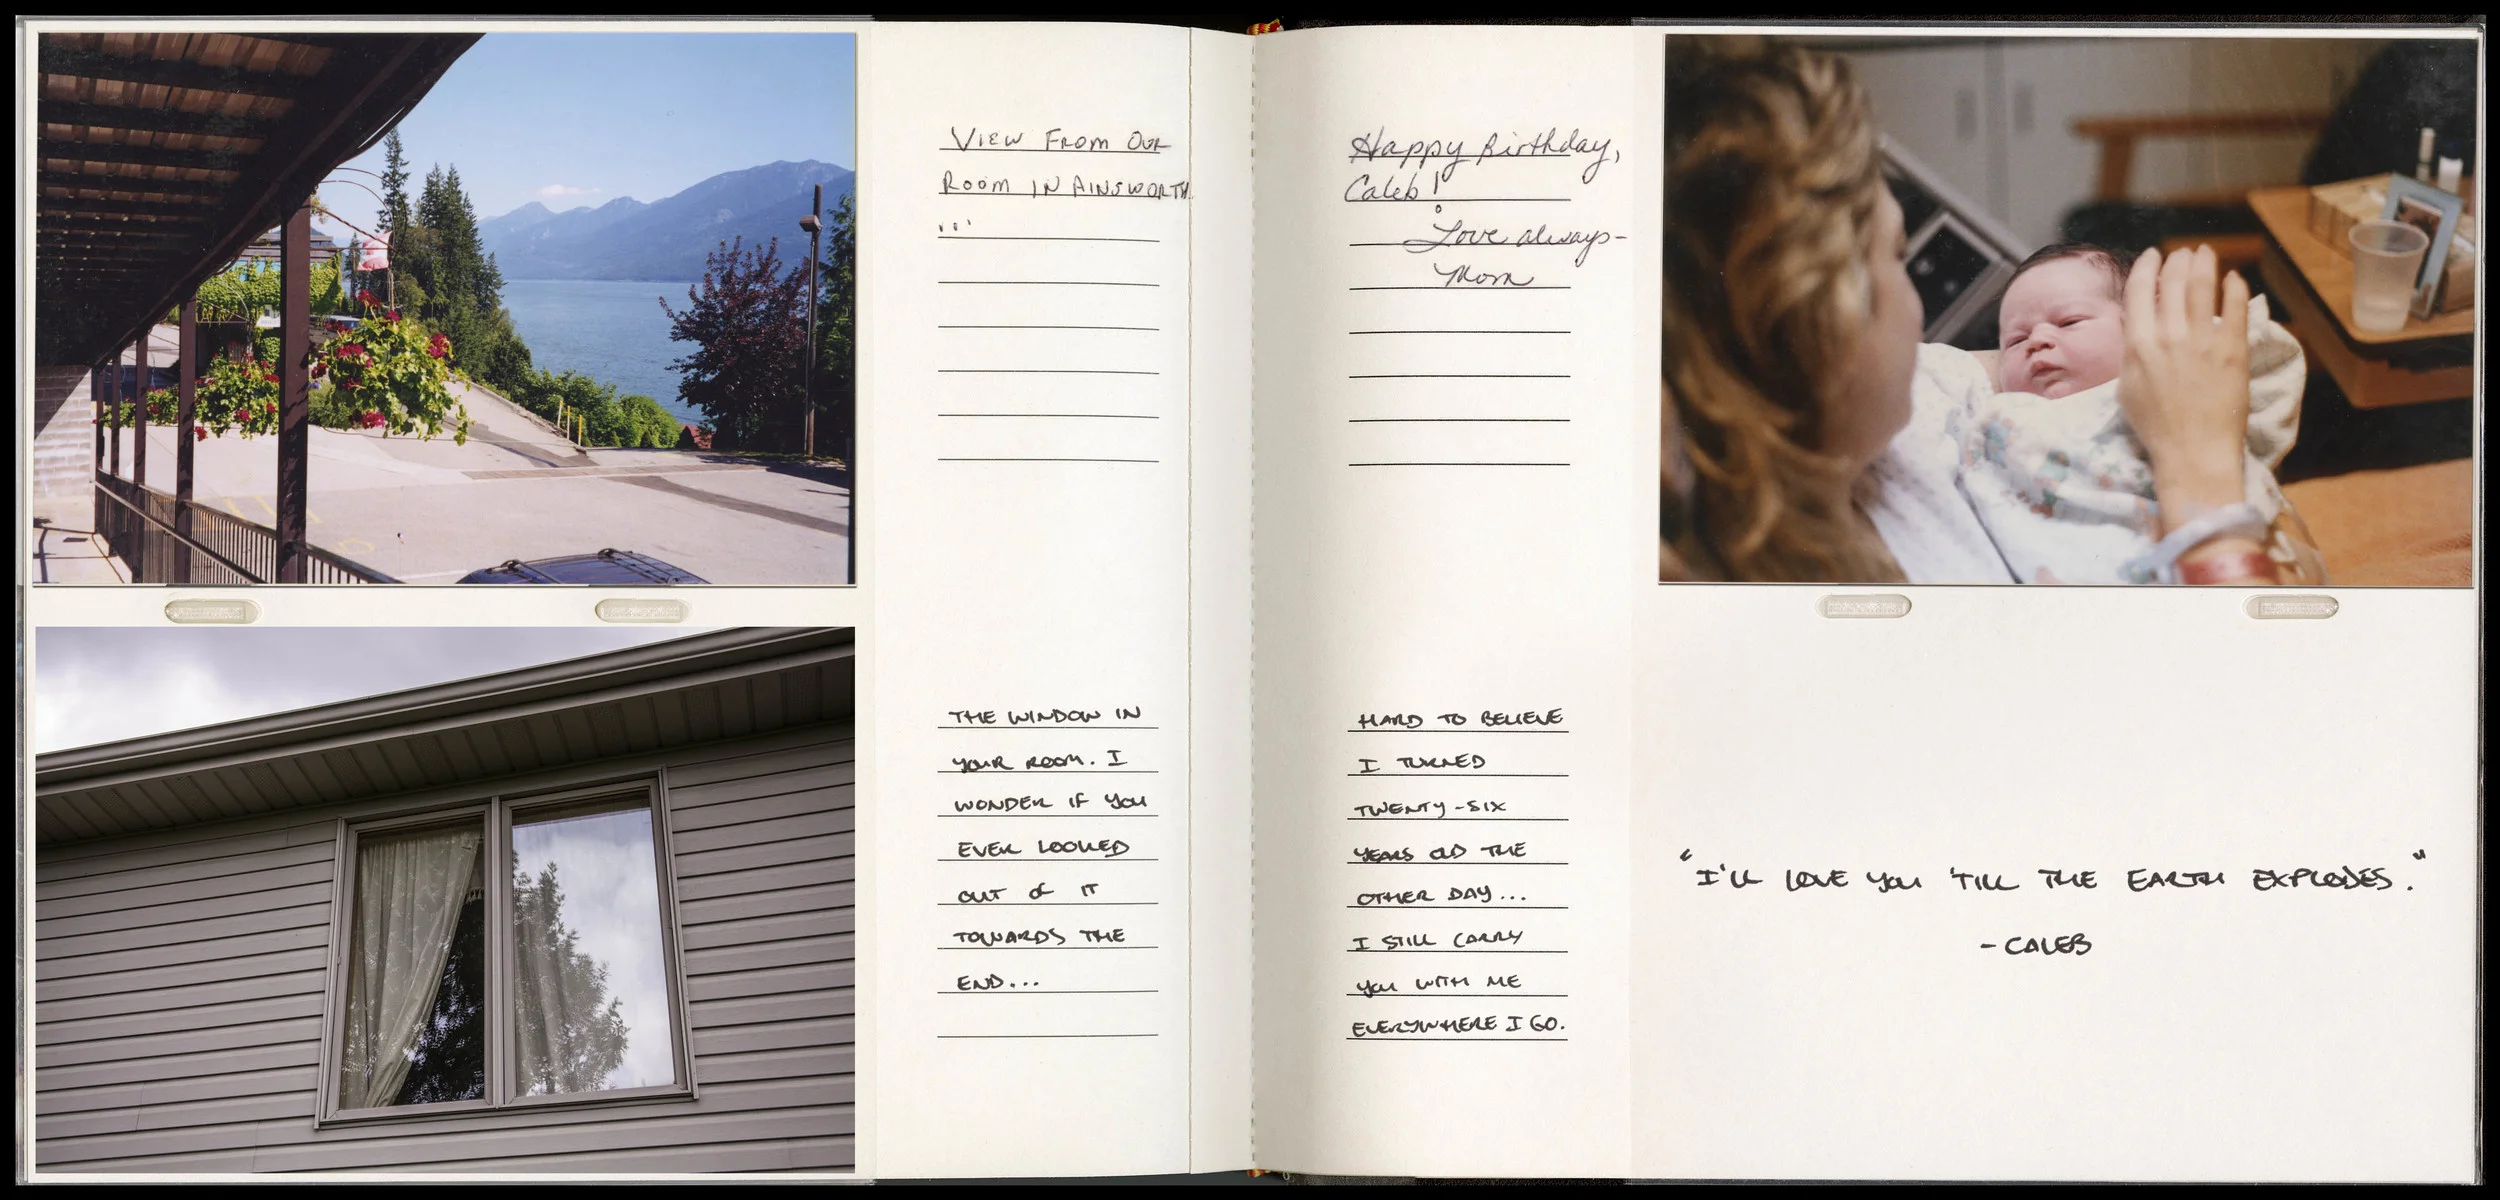 VIEW FROM OUR
ROOM IN AINSWORTH
...
THE WINDOW IN
YOUR ROOM. I
WONDER IF YOU
EVER LOOKED
OUT OF IT
TOWARDS THE
END...
Happy Birthday,
Caleb!
Love always-
Mom
HARD TO BELIEVE
I TURNED
TWENTY-SIX
YEARS OLD THE
OTHER DAY...
I STILL CARRY
YOU WITH ME
EVERYWHERE I GO.
"I'LL LOVE YOU 'TILL THE EARTH EXPLODES."
- CALEB